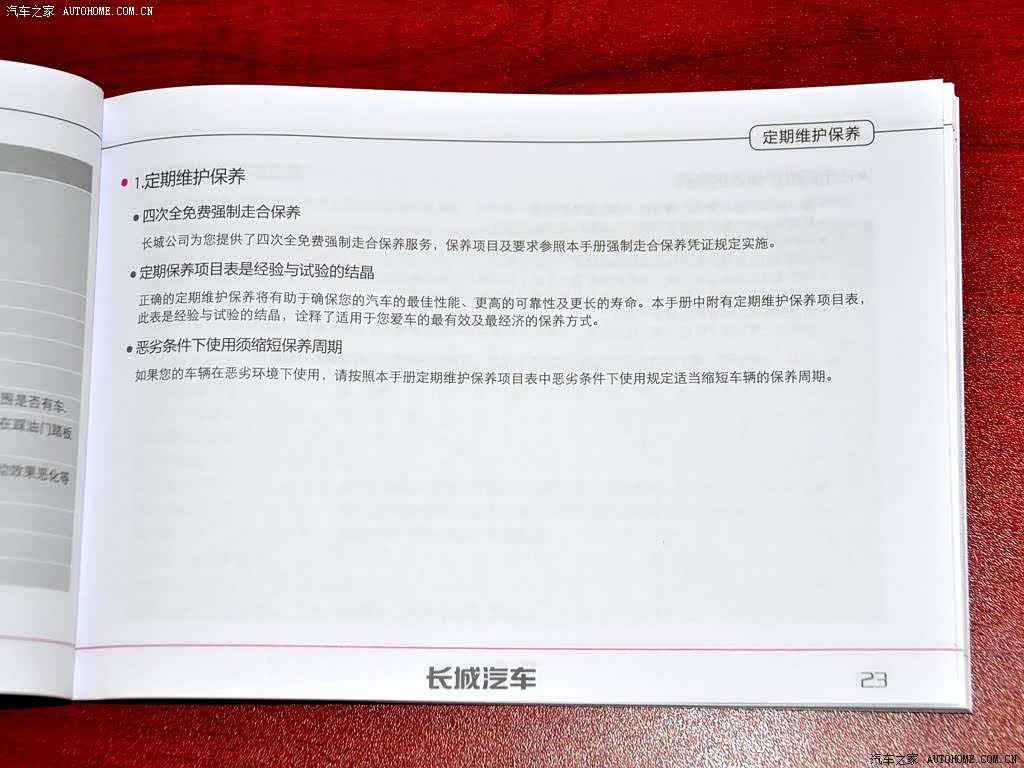 汽车之家 AUTOHOME.COM.CN
定期维护保养
1.定期维护保养
四次全免费强制走合保养
长城公司为您提供了四次全免费强制走合保养服务，保养项目及要求参照本手册强制走合保养凭证规定实施。
定期保养项目表是经验与试验的结晶
正确的定期维护保养将有助于确保您的汽车的最佳性能、更高的可靠性及更长的寿命。本手册中附有定期维护保养项目表，
此表是经验与试验的结晶，诠释了适用于您爱车的最有效及最经济的保养方式。
恶劣条件下使用须缩短保养周期
如果您的车辆在恶劣环境下使用，请按照本手册定期维护保养项目表中恶劣条件下使用规定适当缩短车辆的保养周期。
围是否有车.
在踩油门踏板
动效果恶化等
长城汽车
23
汽车之家 AUTOHOME.COM.CN